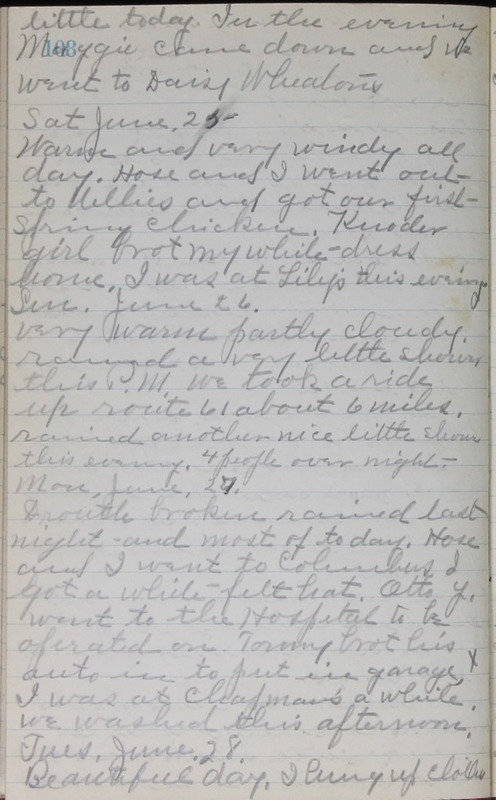 little today. In the evening
108
Maggie came down and we
went to Daisy Whealon's
Sat June, 25-
Warm and very windy all
day. Hose and I went out-
to Nellies and got our first-
Spring Chicken. Knoder
girl brot my white-dress
home, I was at Lily's this evening
Sun. June 26.
very warm partly cloudy.
rained a very little shower
this P.M. we took a ride
up route 61 about 6 miles.
rained another nice little shower
this evening. 4 people over night-
Mon, June, 27.
Drouth broken rained last
night-and most of to day. Hose
and I went to Columbus, I
got a white-felt hat. Otto Y.
went to the Hospital to be
operated on. Tommy brot his
auto in to put in garage X
I was at Chapman's a while.
we washed this afternoon.
Tues, June, 28.
Beautiful day. I hung up clothes